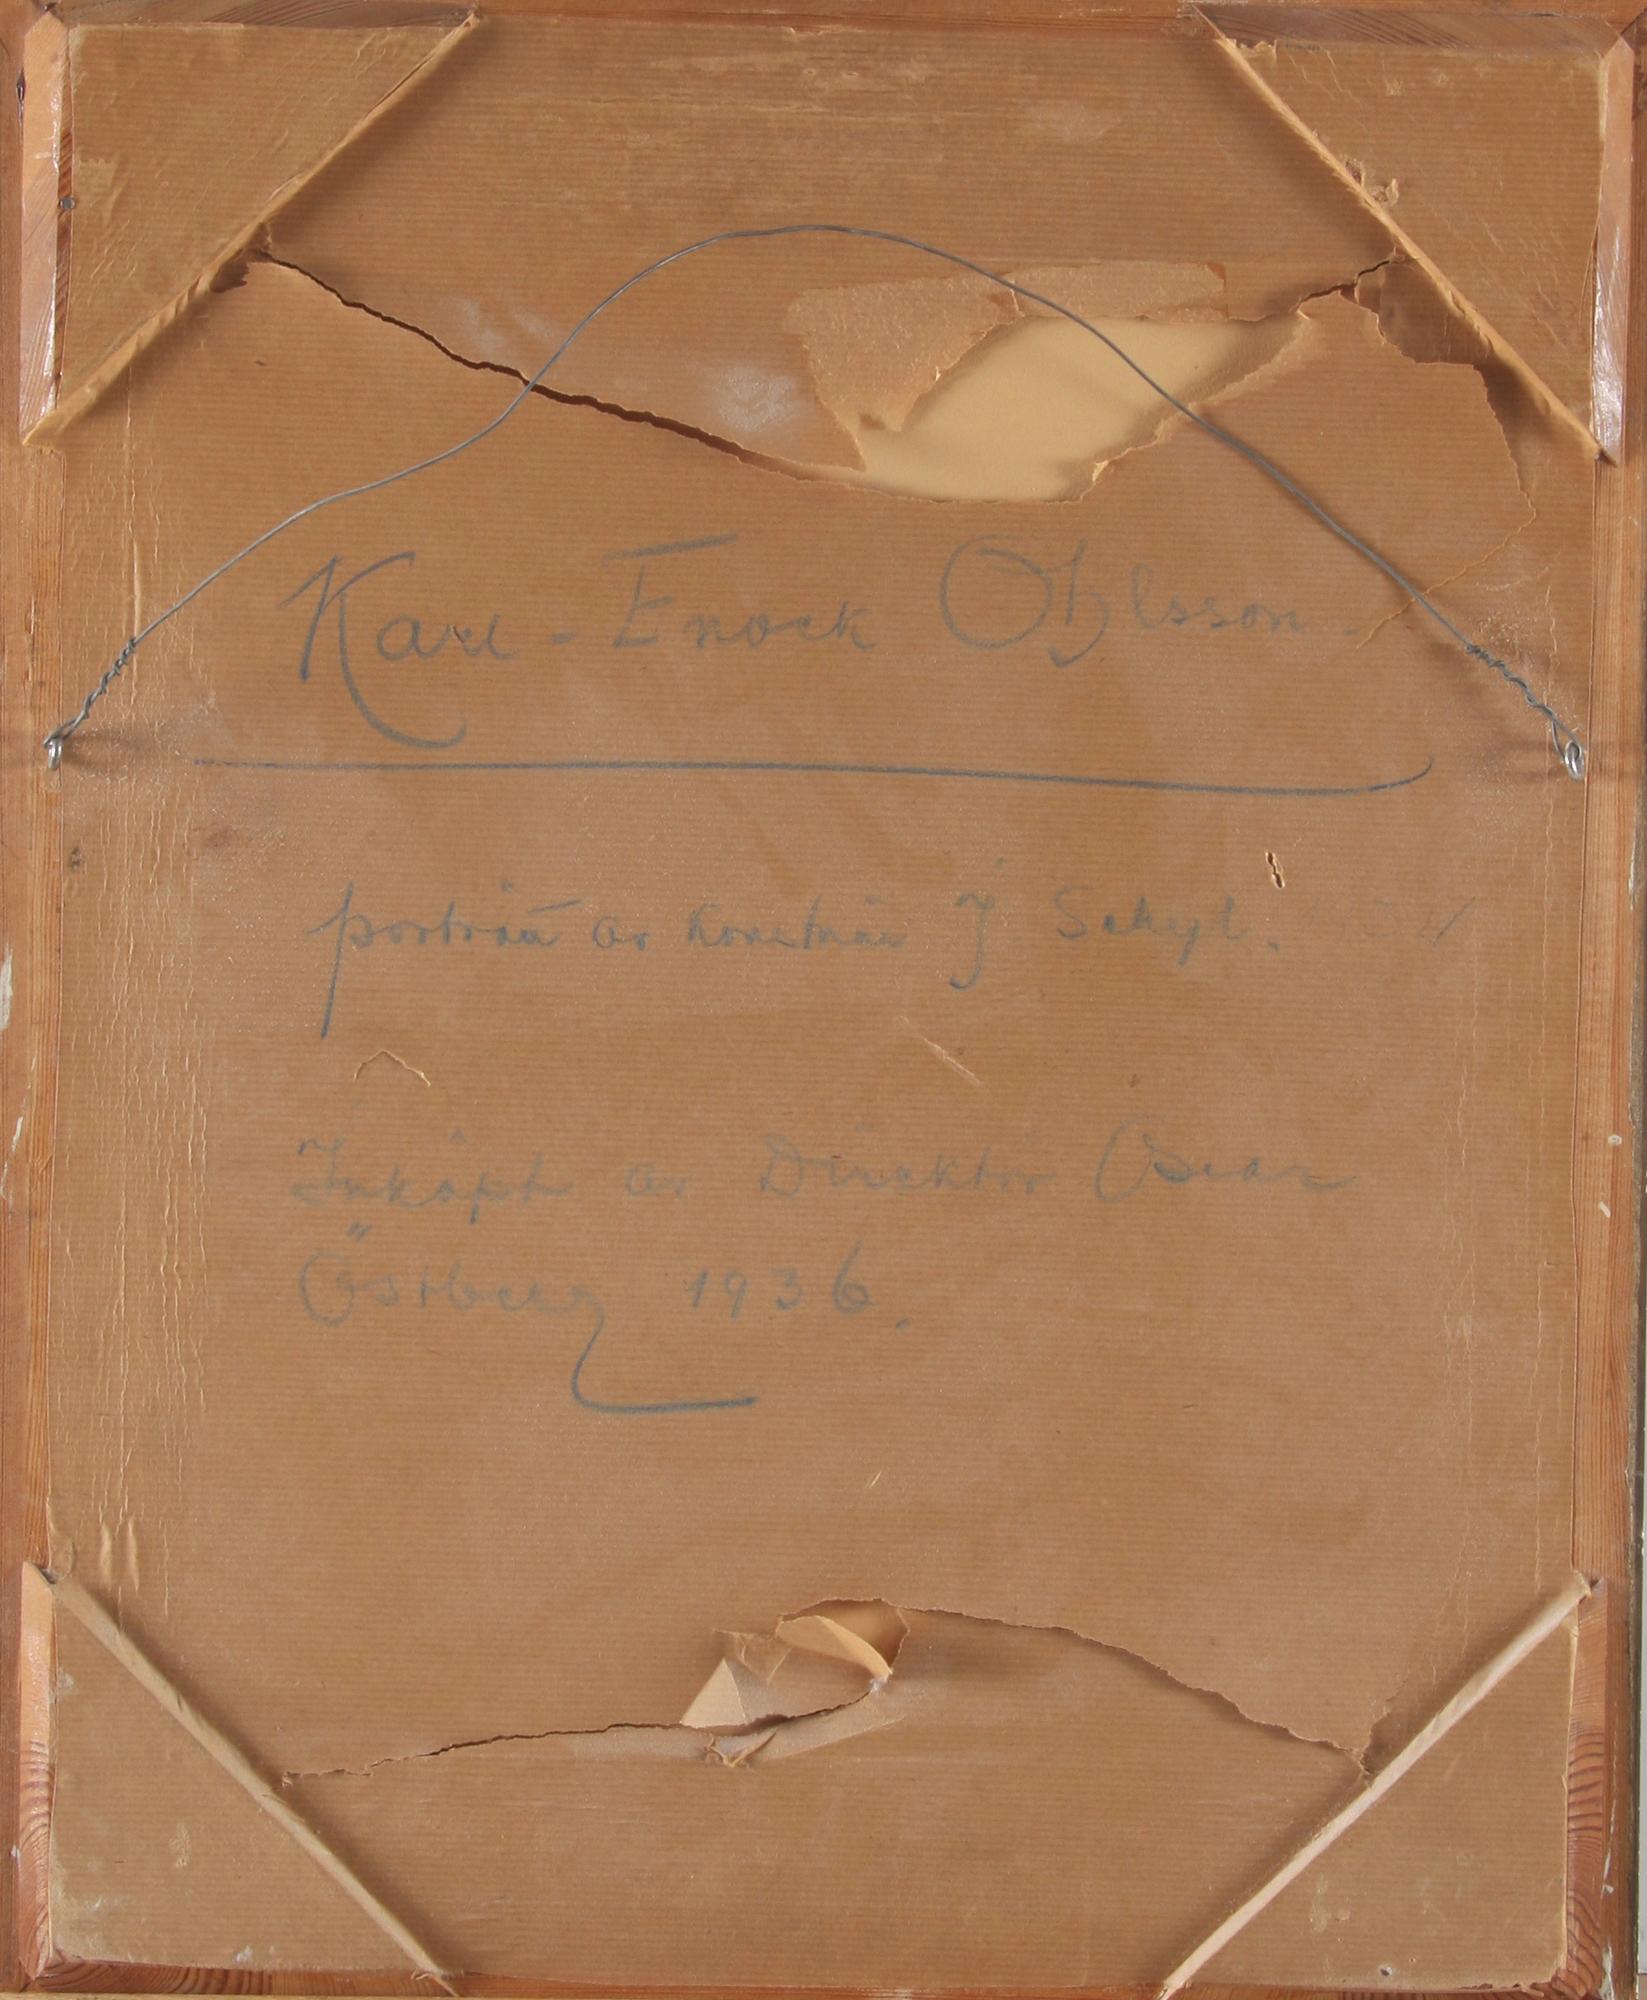 Karl-Enock Ohlsson.
porträtt av Konstnär J. Sekyl.
Inköpt av Direktör Oscar
Östberg 1936.